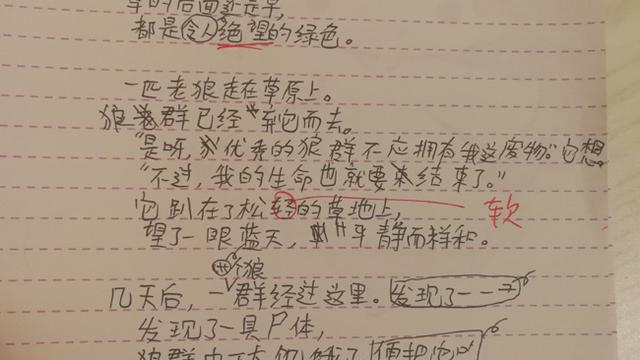 草的后面还是草,
都是令人绝望的绿色。
一匹老狼走在草原上。
狼群已经弃它而去。
"是呀,优秀的狼群不应拥有我这废物。"它想。
"不过,我的生命也就要结束了。"
它趴在了松轻的草地上,
软
望了一眼蓝天,平静而祥和。
狼
几天后,一群经过这里。发现了一
发现了一具尸体,
狼群